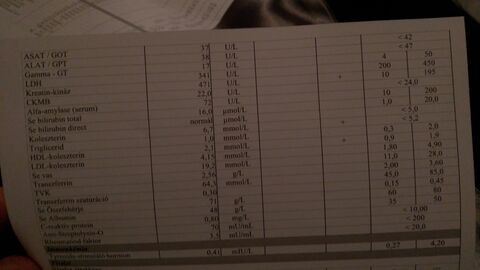 ASAT / GOT 37 U/L < 42
ALAT / GPT 38 U/L < 47
Gamma - GT 17 U/L 4 50
LDH 341 U/L 200 450
Kreatin-kináz 471 U/L + 10 195
CKMB 22,0 U/L < 24,0
Alfa-amylase (serum) 72 U/L 10 200
Se bilirubin total 16,0 µmol/L 1,0 20,0
Se bilirubin direct normál µmol/L < 5,0
Koleszterin 6,7 mmol/L + < 5,2
Triglicerid 1,0 mmol/L 0,3 2,0
HDL-koleszterin 2,1 mmol/L + 0,9 1,9
LDL-koleszterin 4,15 mmol/L 1,80 4,90
Se vas 19,2 11,0 28,0
Transzferrin 2,56 g/L 2,00 3,60
TVK 64,3 45,0 85,0
Transzferrin szaturáció 0,30 0,15 0,45
Se Összfehérje 71 g/L 60 80
Se Albumin 48 g/L 35 50
C-reaktív protein 0,80 mg/L < 10,00
Anti-Streptolysin-O 70 < 200
Rheumatoid faktor 3,5 < 20,0
Immunkémia
Tyreoida-stimuláló hormon 0,41 mIU/L 0,27 4,20